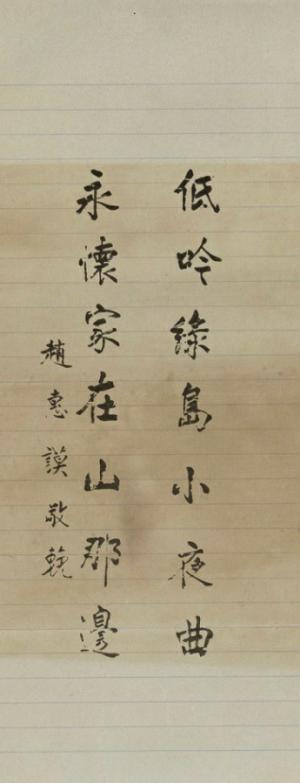 低吟綠島小夜曲
永懷家在山那邊
趙惠謨敬輓